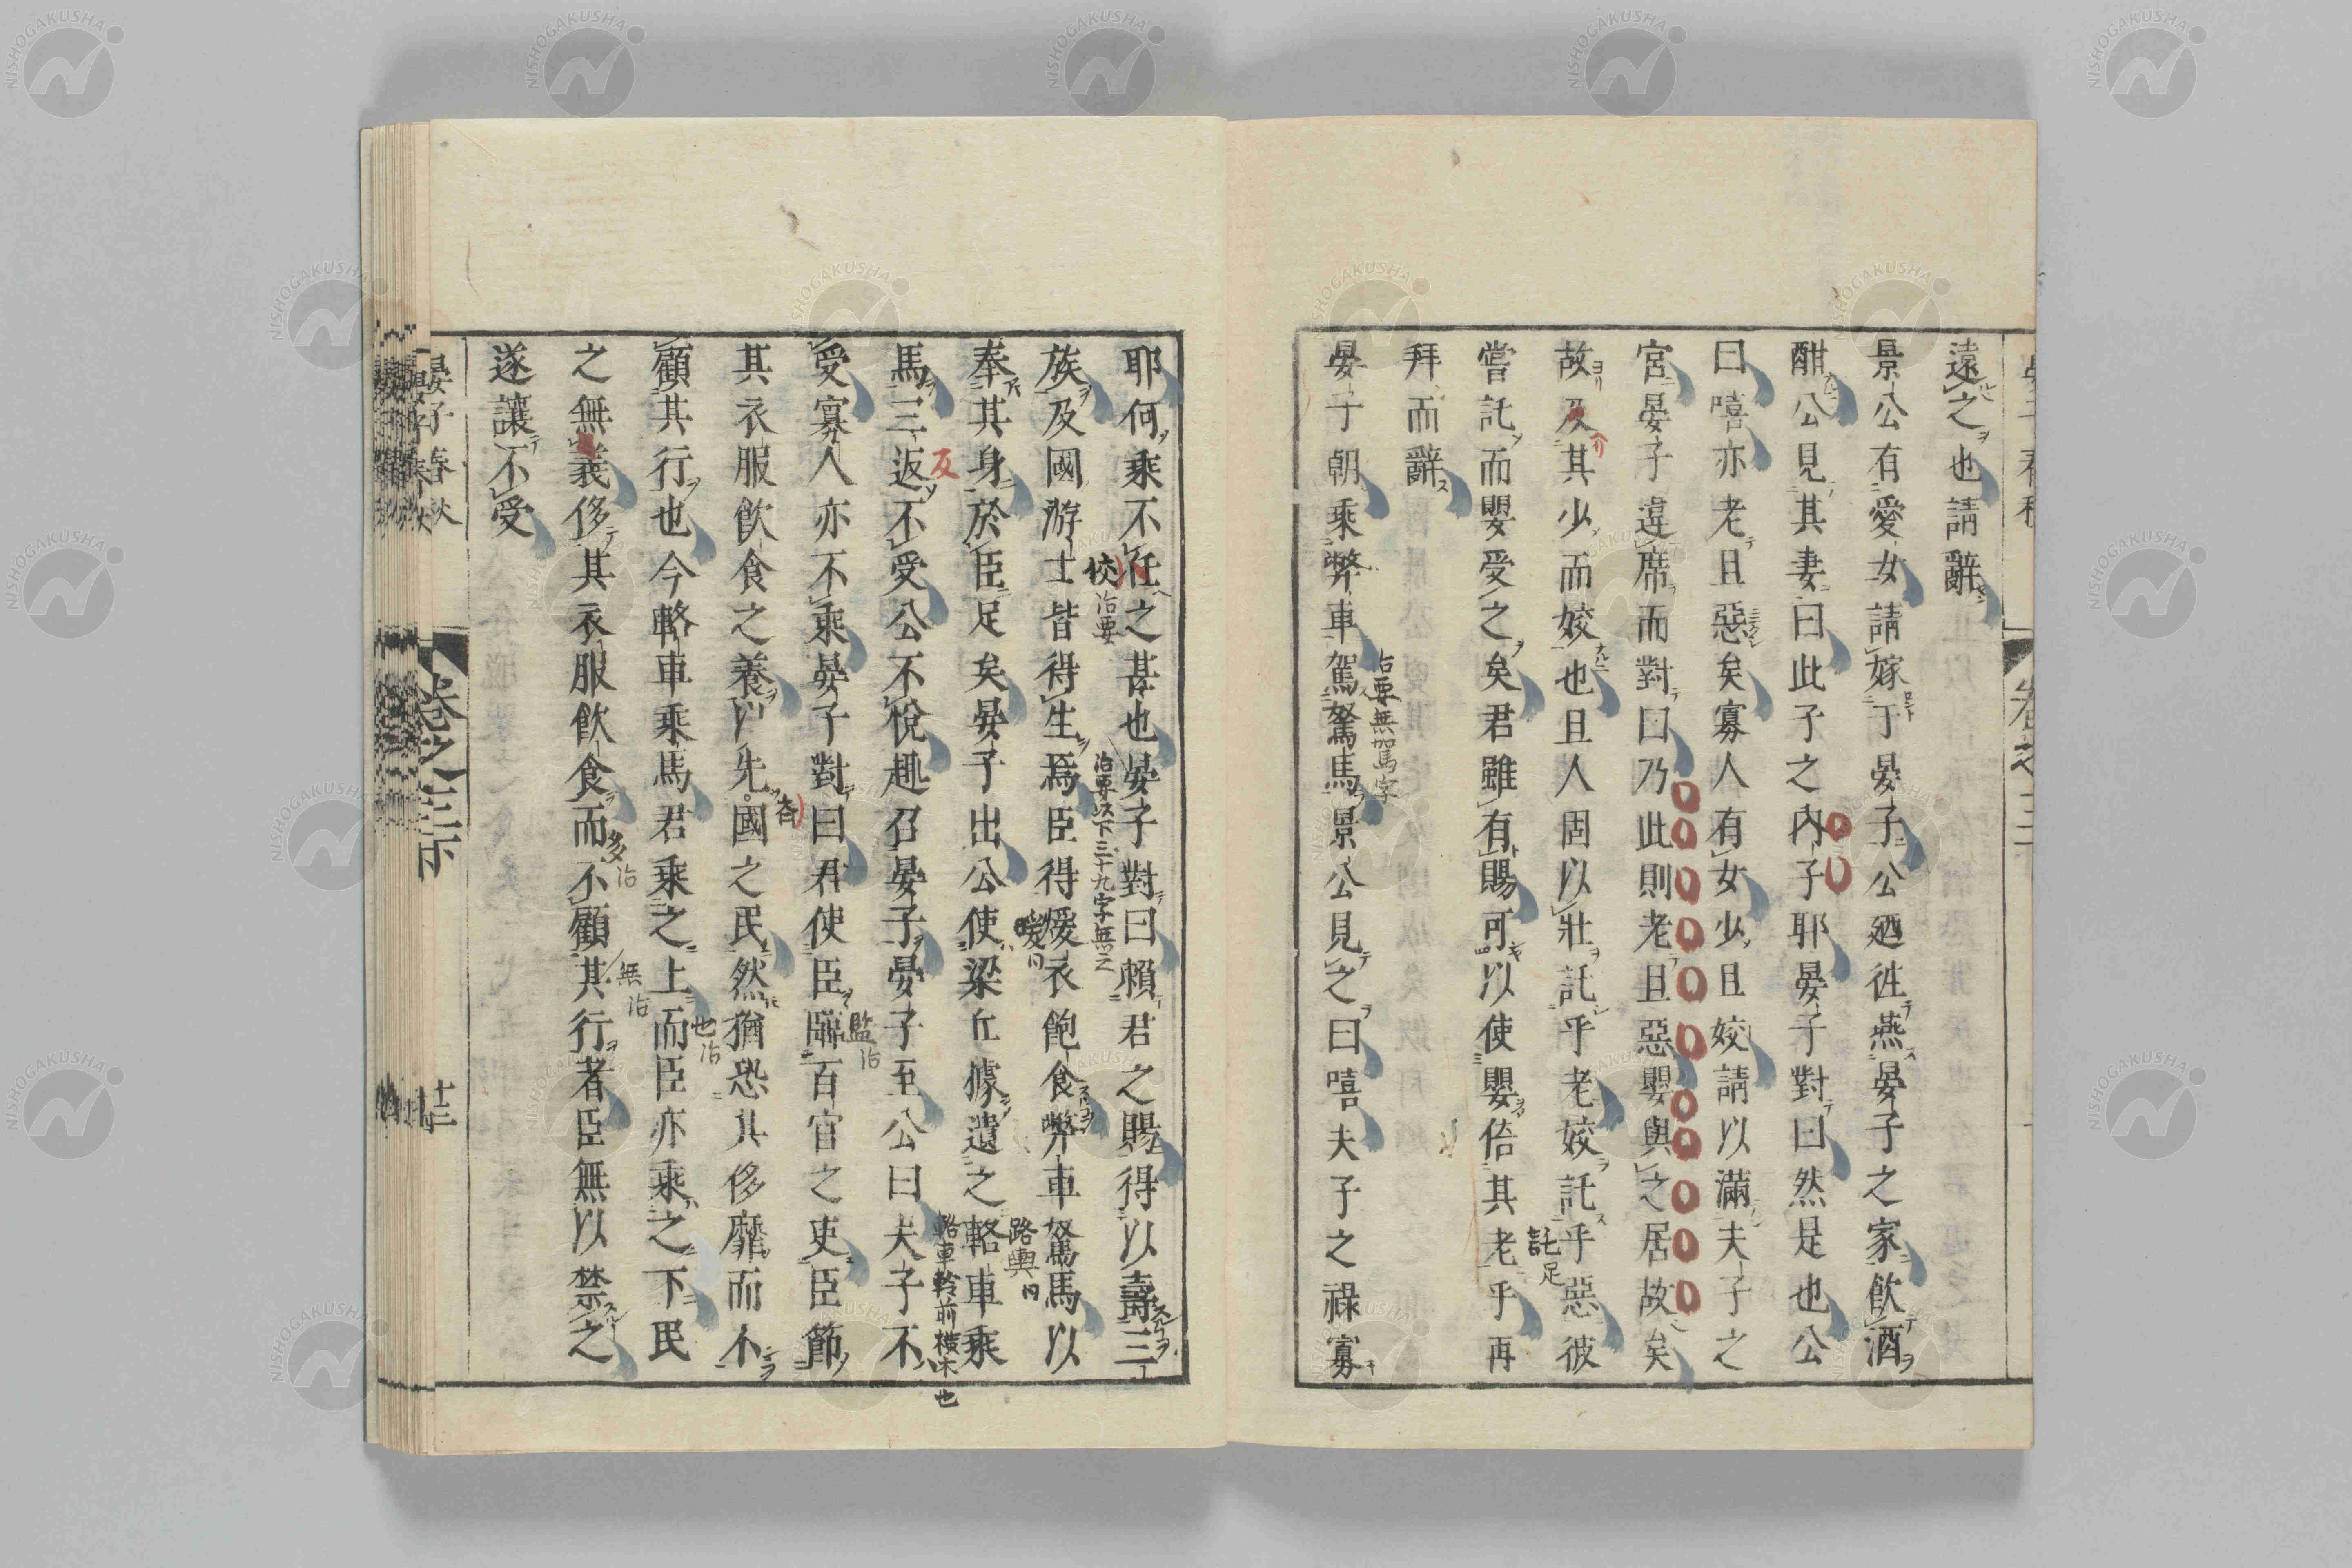 遠之也請辭
景公有愛女請嫁于晏子公廼徃燕晏子之家飮酒
酣公見其妻曰此子之内子耶晏子對曰然是也公
曰嘻亦老且惡矣寡人有女少且姣請以滿夫子之
宮晏子違席而對曰乃此則老且惡嬰與之居故矣
故及其少而姣也且人固以壯託乎老姣託乎惡彼
託足
嘗託而嬰受之矣君雖有賜可以使嬰倍其老乎再
拜而辭
治要無駕字
晏子朝乘弊車駕駑馬景公見之曰嘻夫子之祿寡
耶何乘不任之甚也晏子對曰賴君之賜得以壽三
佼治要
治要以下三十九字無之
族及國游士皆得生焉臣得煖衣飽食弊車駑馬以
暖
路輿
奉其身於臣足矣晏子出公使梁丘據遺之輅車乘
反
輅車軨前橫木也
馬三返不受公不悅趣召晏子晏子至公曰夫子不
受寡人亦不乘晏子對曰君使臣臨百官之吏臣節
監治
其衣服飮食之養以先國之民然猶恐其侈靡而不
顧其行也今輅車乘馬君乘之上而臣亦乘之下民
也治
之無義侈其衣服飮食而不顧其行者臣無以禁之
多治
無治
遂讓不受
晏子春秋
卷之三下